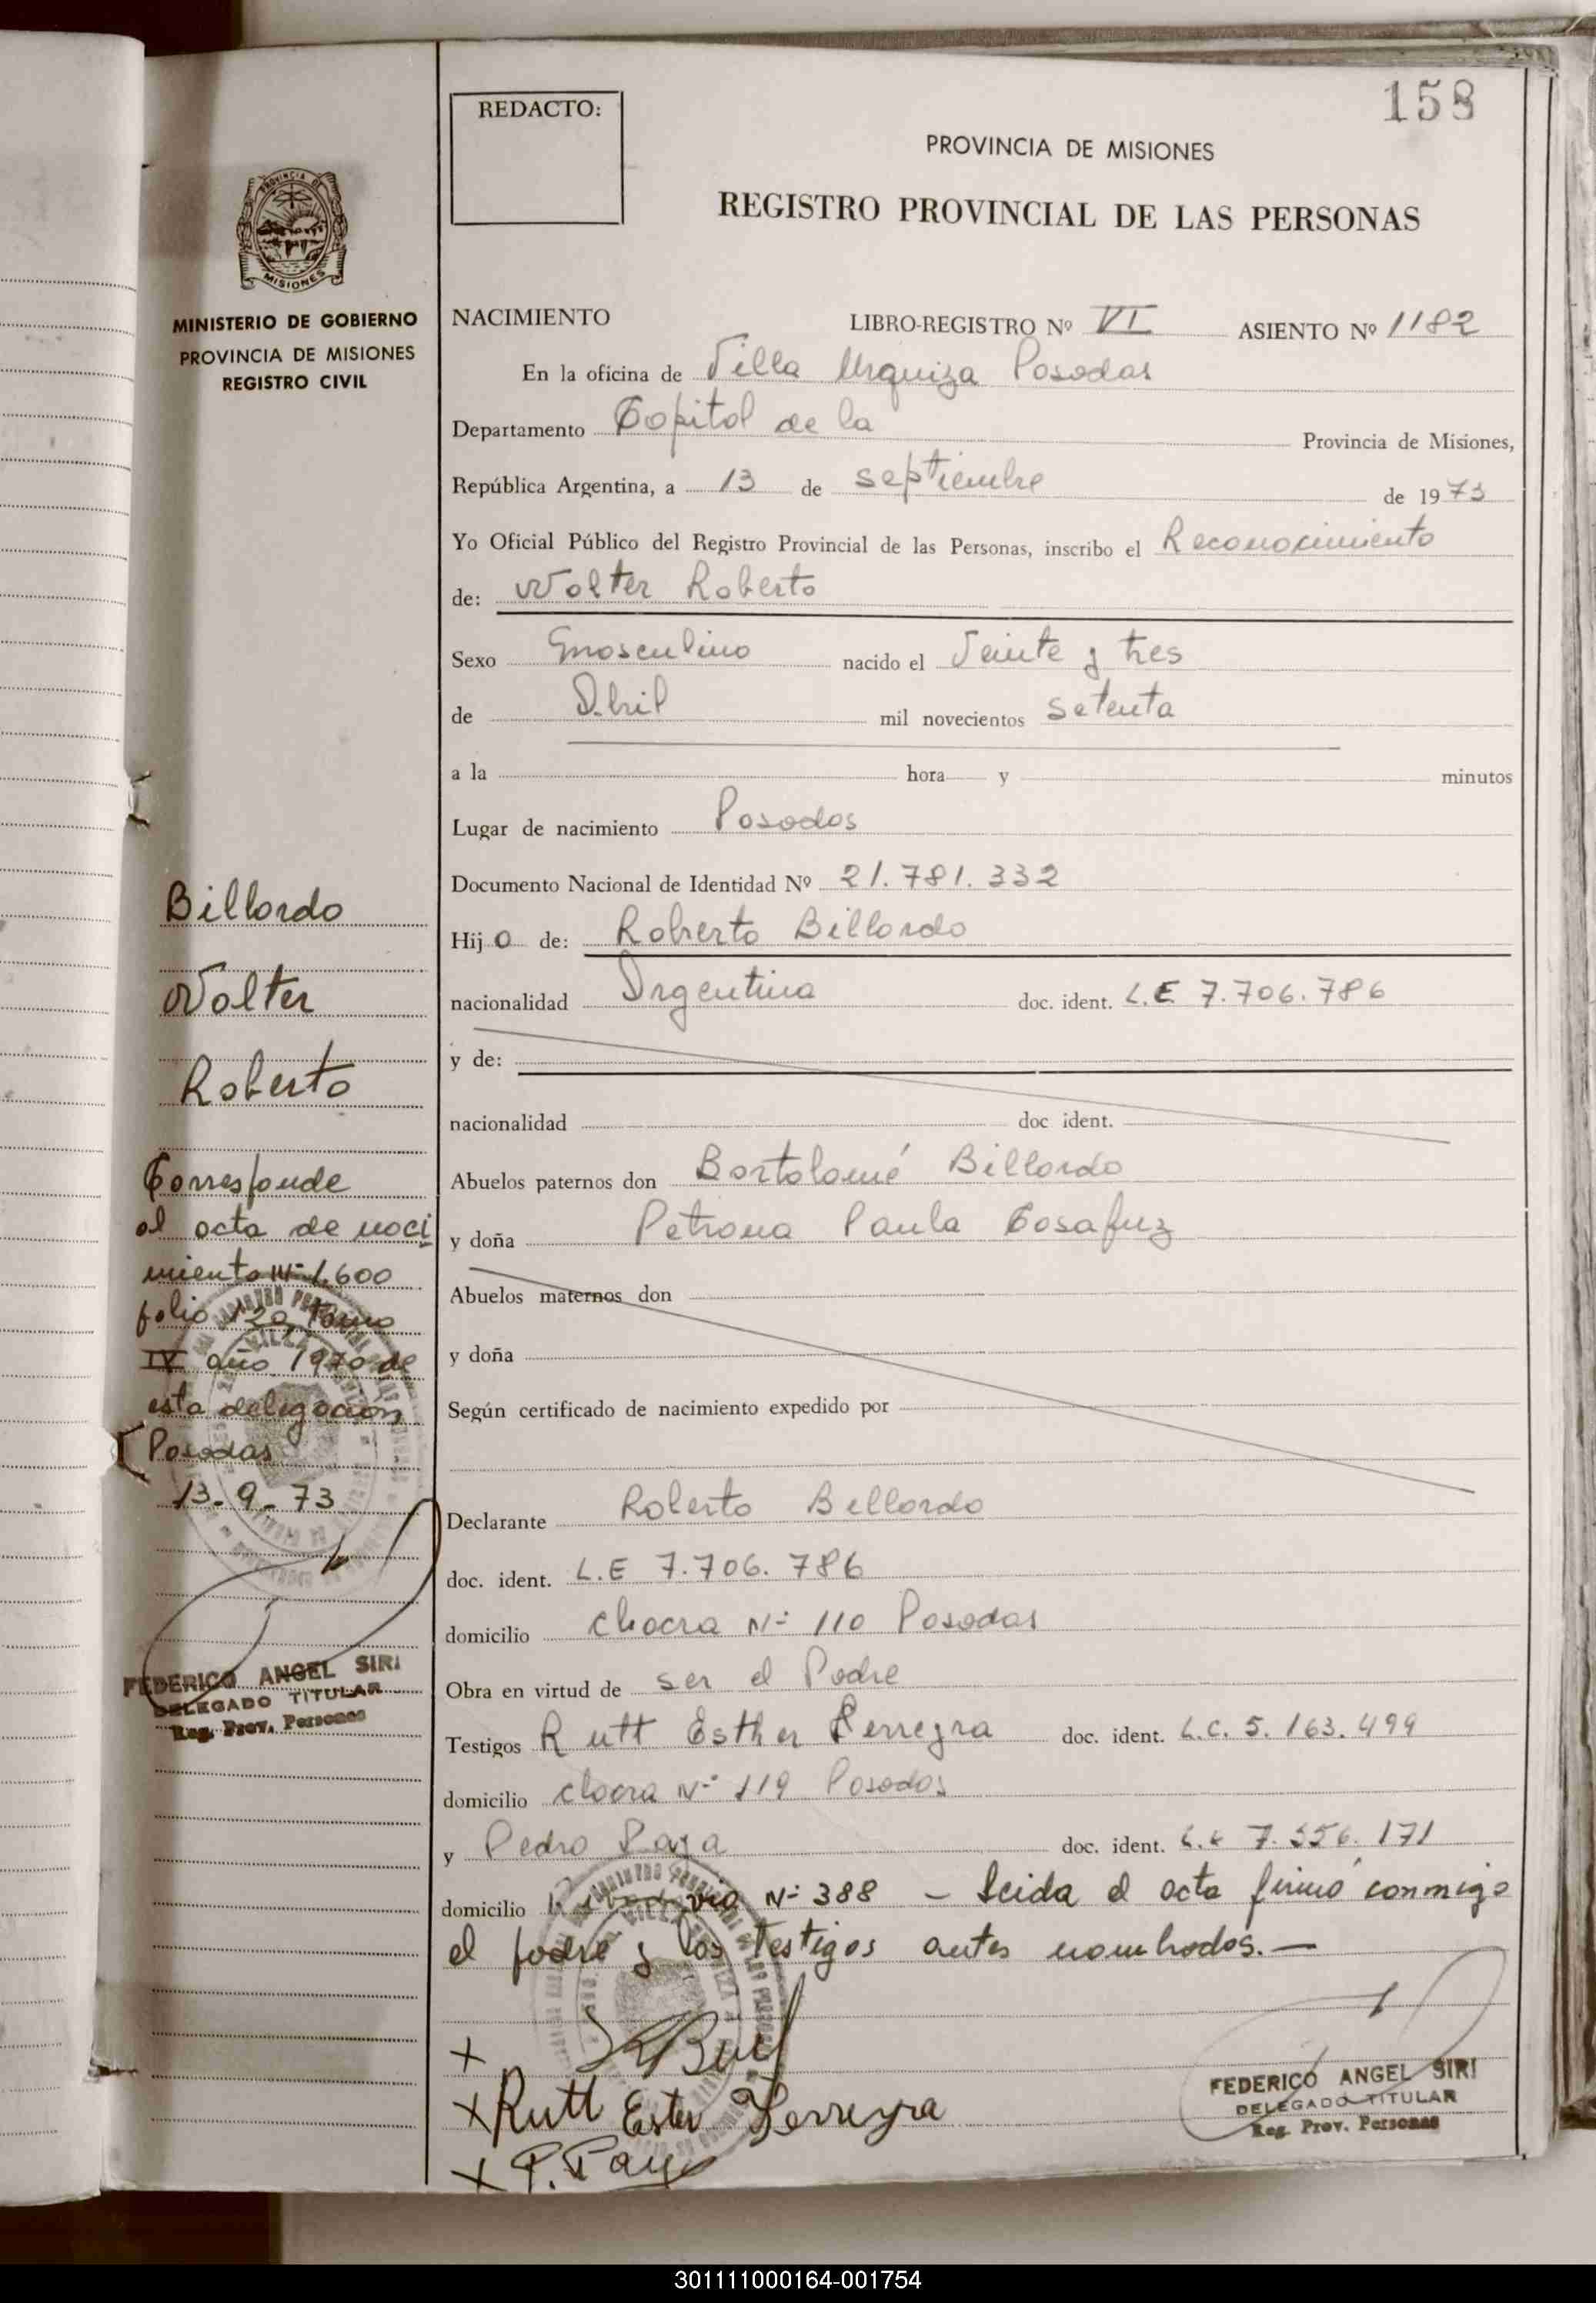 158
REDACTO:
PROVINCIA DE MISIONES
REGISTRO PROVINCIAL DE LAS PERSONAS
PROVINCIA DE
MISIONES
MINISTERIO DE GOBIERNO
PROVINCIA DE MISIONES
REGISTRO CIVIL
NACIMIENTO LIBRO-REGISTRO Nº VI ASIENTO Nº 1182
En la oficina de Villa Urquiza Posadas
Departamento Capital de la Provincia de Misiones,
República Argentina, a 13 de septiembre de 1973
Yo Oficial Público del Registro Provincial de las Personas, inscribo el Reconocimiento
de: Walter Roberto
Sexo masculino nacido el Veinte y tres
de Abril mil novecientos setenta
a la hora y minutos
Lugar de nacimiento Posadas
Documento Nacional de Identidad Nº 21.781.332
Hijo de: Roberto Billordo
nacionalidad Argentina doc. ident. L.E 7.706.786
y de:
nacionalidad doc ident.
Abuelos paternos don Bartolomé Billordo
y doña Petrona Paula
Abuelos maternos don
y doña
Según certificado de nacimiento expedido por
Declarante Roberto Billordo
doc. ident. L.E 7.706.786
domicilio chacra Nº 110 Posadas
Obra en virtud de ser el Padre
Testigos Rutt Esther Ferreyra doc. ident. L.C. 5.163.499
domicilio chacra Nº 119 Posadas
y Pedro doc. ident. 171
domicilio Nº 388 – Leida el acta firmó conmigo
el padre y los testigos antes nombrados.—
X
X Rutt Ester Ferreyra
X P.
FEDERICO ANGEL SIRI
DELEGADO TITULAR
Reg. Prov. Personas
Billordo
Walter
Roberto
Corresponde
al acta de naci
miento Nº 1.600
folio Tomo
IV año 1970 de
esta delegación
Posadas
13-9-73
FEDERICO ANGEL SIRI
DELEGADO TITULAR
Reg. Prov. Personas
301111000164-001754